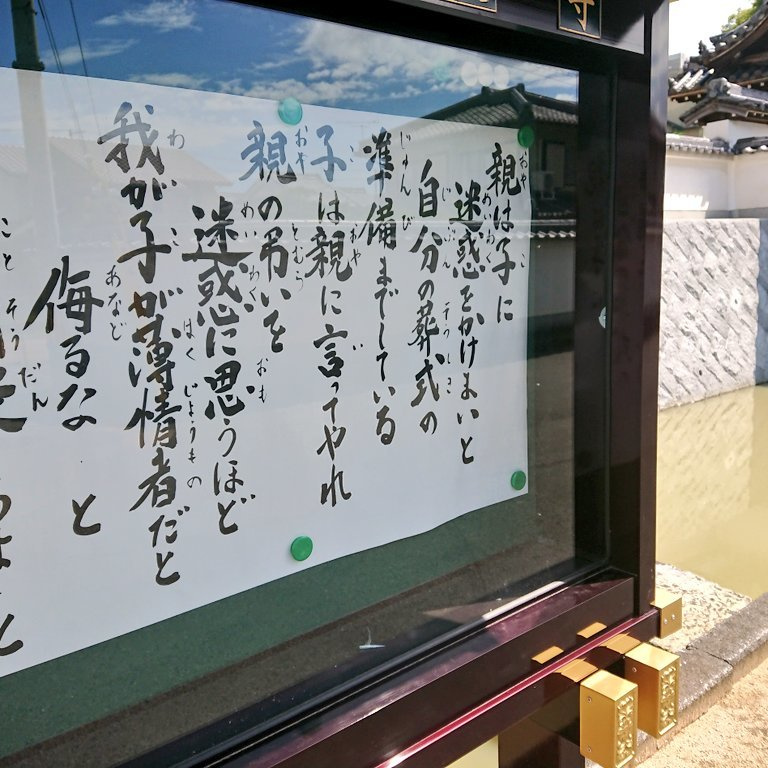 寺
親は子に
迷惑をかけまいと
自分の葬式の
準備までしている
子は親に言ってやれ
親の弔いを
迷惑に思うほど
我が子が薄情者だと
侮るな　と